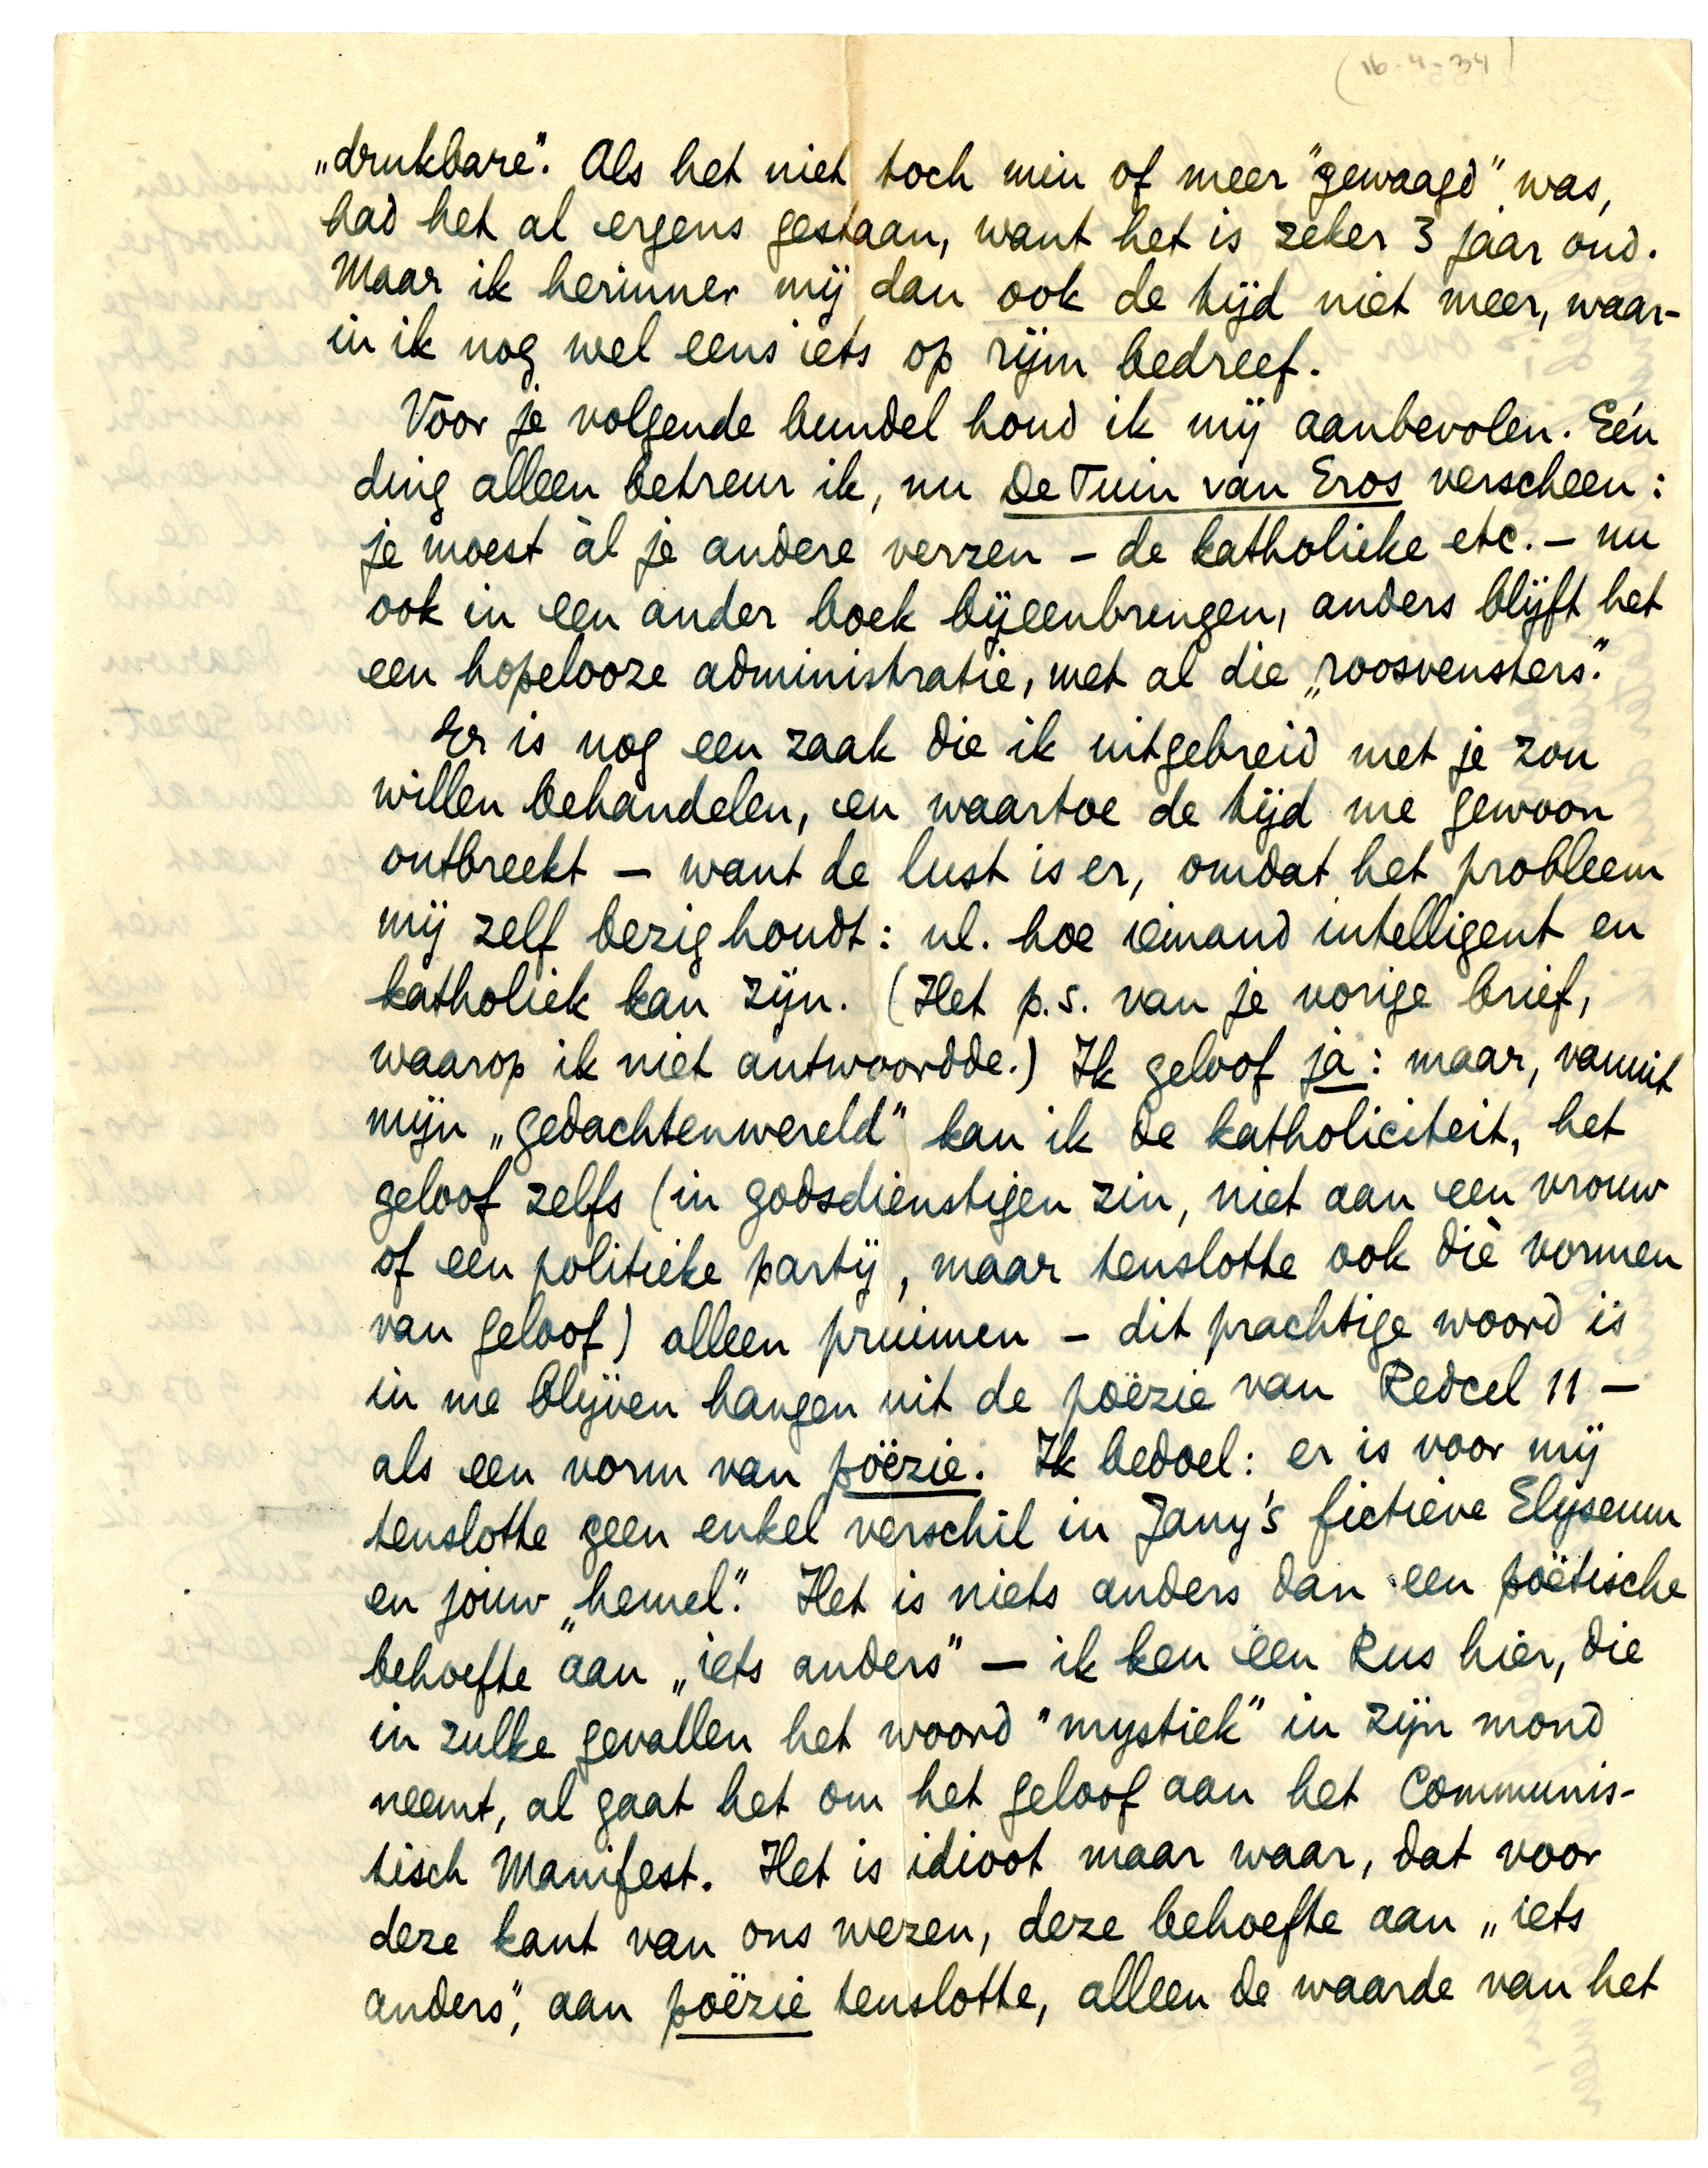 (16-4-34)
„drukbare". Als het niet toch min of meer "gewaagd" was,
had het al ergens gestaan, want het is zeker 3 jaar oud.
Maar ik herinner mij dan ook de tijd niet meer, waar-
in ik nog wel eens iets op rijm bedreef.
Voor je volgende bundel houd ik mij aanbevolen. Eén
ding alleen betreur ik, nu De Tuin van Eros verscheen:
je moest àl je andere verzen – de katholieke etc. – nu
ook in een ander boek bijeenbrengen, anders blijft het
een hopelooze administratie, met al die „roosvensters."
Er is nog een zaak die ik uitgebreid met je zou
willen behandelen, en waartoe de tijd me gewoon
ontbreekt – want de lust is er, omdat het probleem
mij zelf bezig houdt: nl. hoe iemand intelligent en
katholiek kan zijn. (Het p.s. van je vorige brief,
waarop ik niet antwoordde.) Ik geloof ja: maar, vanuit
mijn „gedachtenwereld" kan ik de katholiciteit, het
geloof zelfs (in godsdienstigen zin, niet aan een vrouw
of een politieke partij, maar tenslotte ook dìe vormen
van geloof) alleen pruimen – dit prachtige woord is
in me blijven hangen uit de poëzie van Redcel 11 –
als een vorm van poëzie. Ik bedoel: er is voor mij
tenslotte geen enkel verschil in Jany's fictieve Elyseum
en jouw „hemel." Het is niets anders dan een poëtische
behoefte aan „iets anders" – ik ken een Rus hier, die
in zulke gevallen het woord "mystiek" in zijn mond
neemt, al gaat het om het geloof aan het Communis-
tisch Manifest. Het is idioot maar waar, dat voor
deze kant van ons wezen, deze behoefte aan „iets
anders", aan poëzie tenslotte, alleen de waarde van het